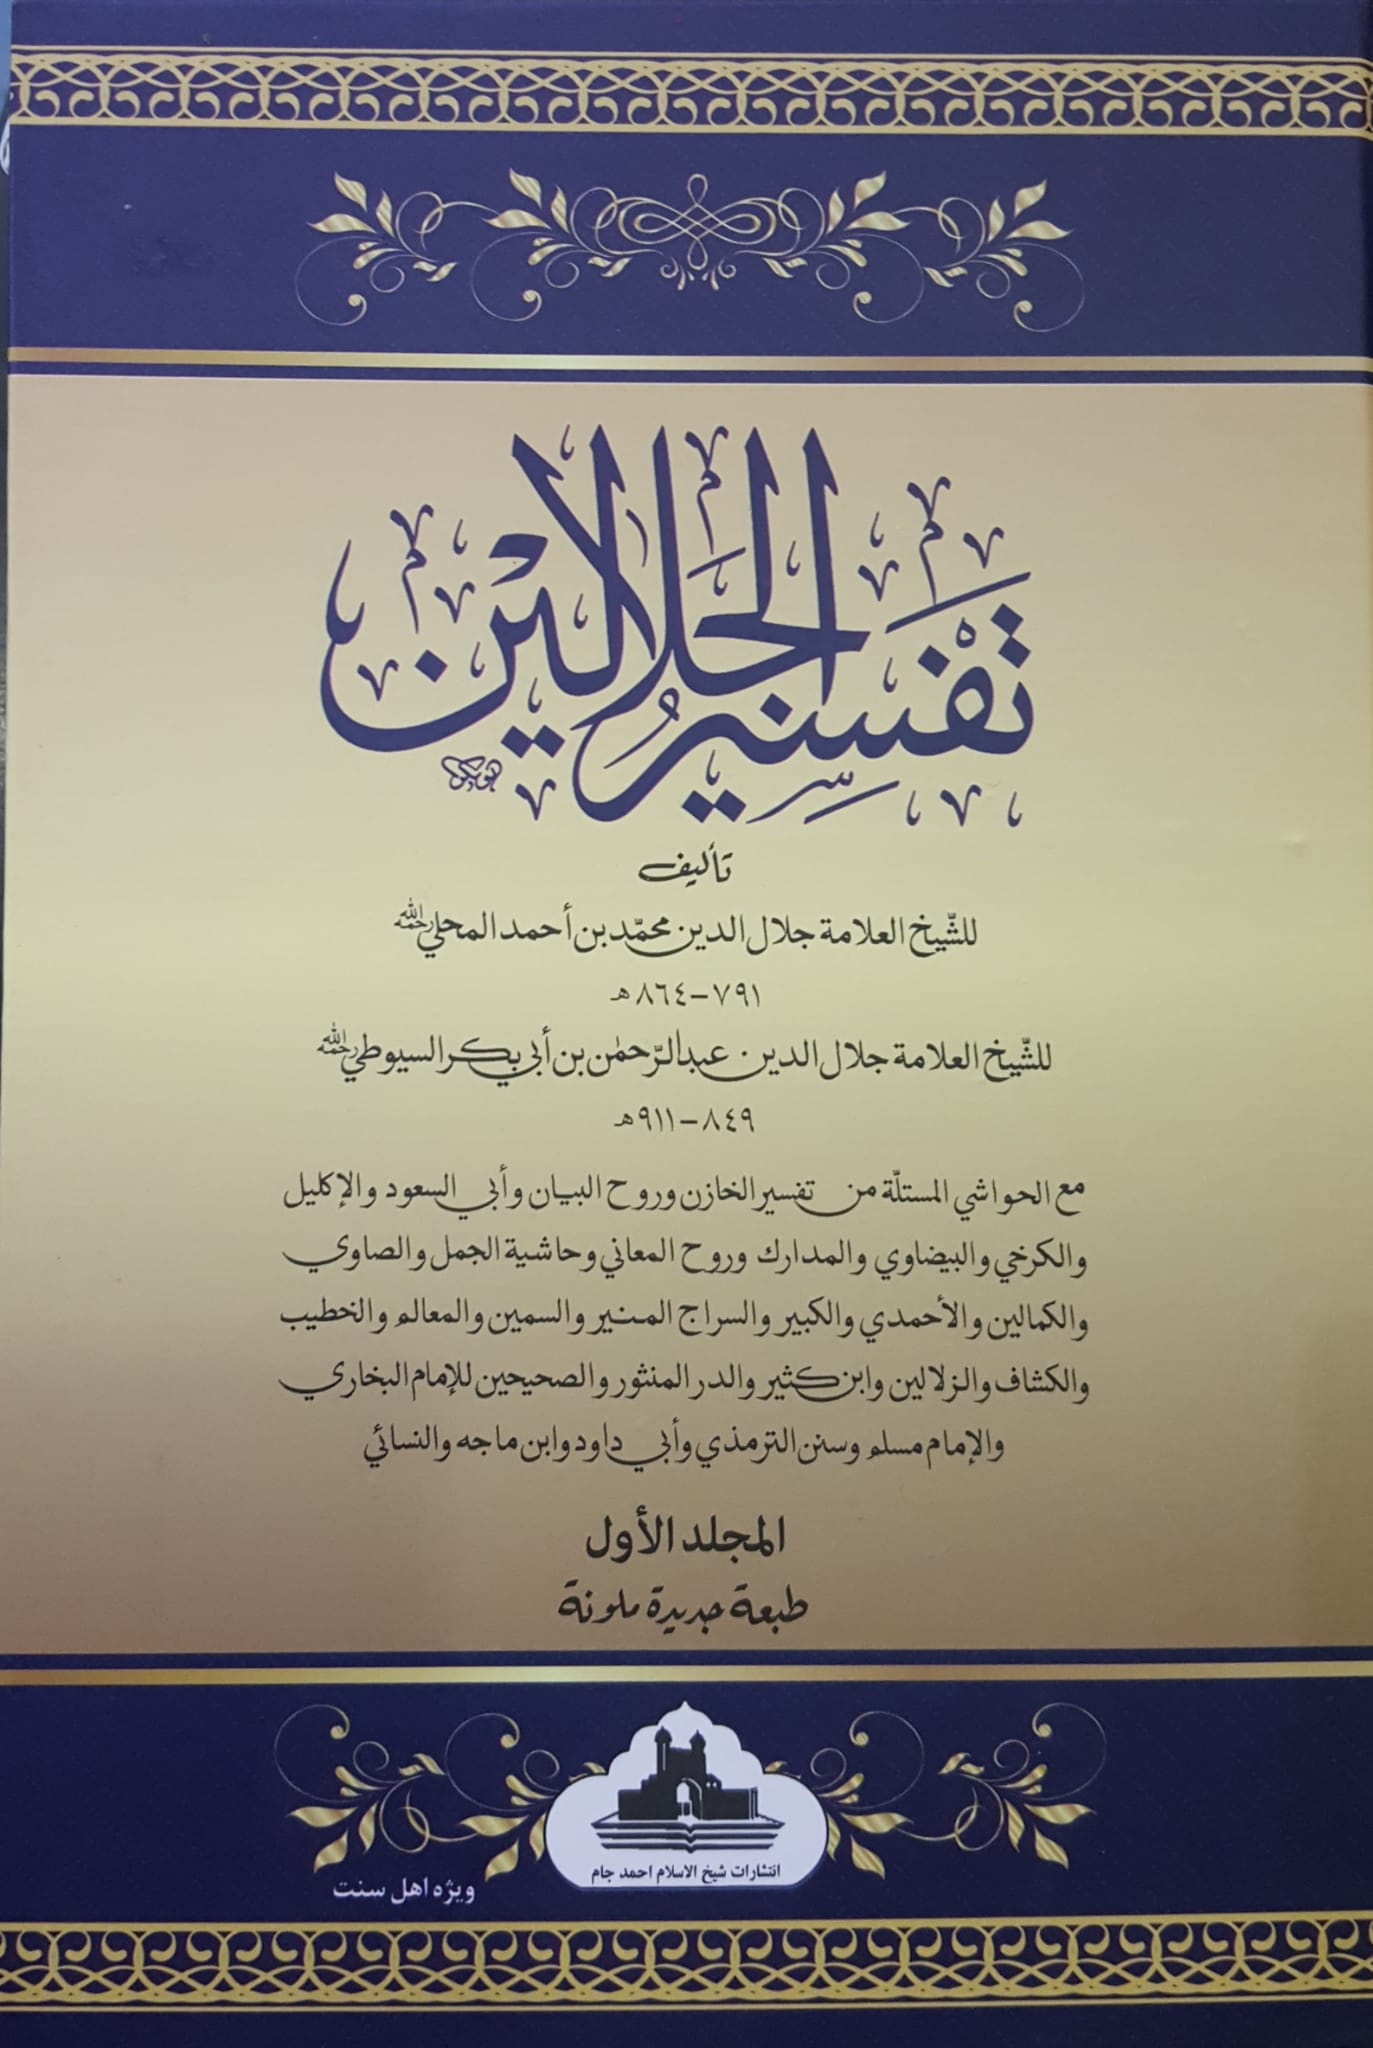 تَفْسِيرُ الجَلَالَيْنِ
تأليف
للشّيخ العلامة جلال الدين محمّد بن أحمد المحلي رحمه الله
٧٩١-٨٦٤هـ
للشّيخ العلامة جلال الدين عبدالرّحمٰن بن أبي بكر السيوطي رحمه الله
٨٤٩-٩١١هـ
مع الحواشي المستلّة من تفسير الخازن وروح البيان وأبي السعود والإكليل
والكرخي والبيضاوي والمدارك وروح المعاني وحاشية الجمل والصاوي
والكمالين والأحمدي والكبير والسراج المنير والسمين والمعالم والخطيب
والكشاف والزلالين وابن كثير والدر المنثور والصحيحين للإمام البخاري
والإمام مسلم وسنن الترمذي وأبي داود وابن ماجه والنسائي
المجلد الأول
طبعة جديدة ملونة
انتشارات شیخ الاسلام احمد جام
ویژه اهل سنت